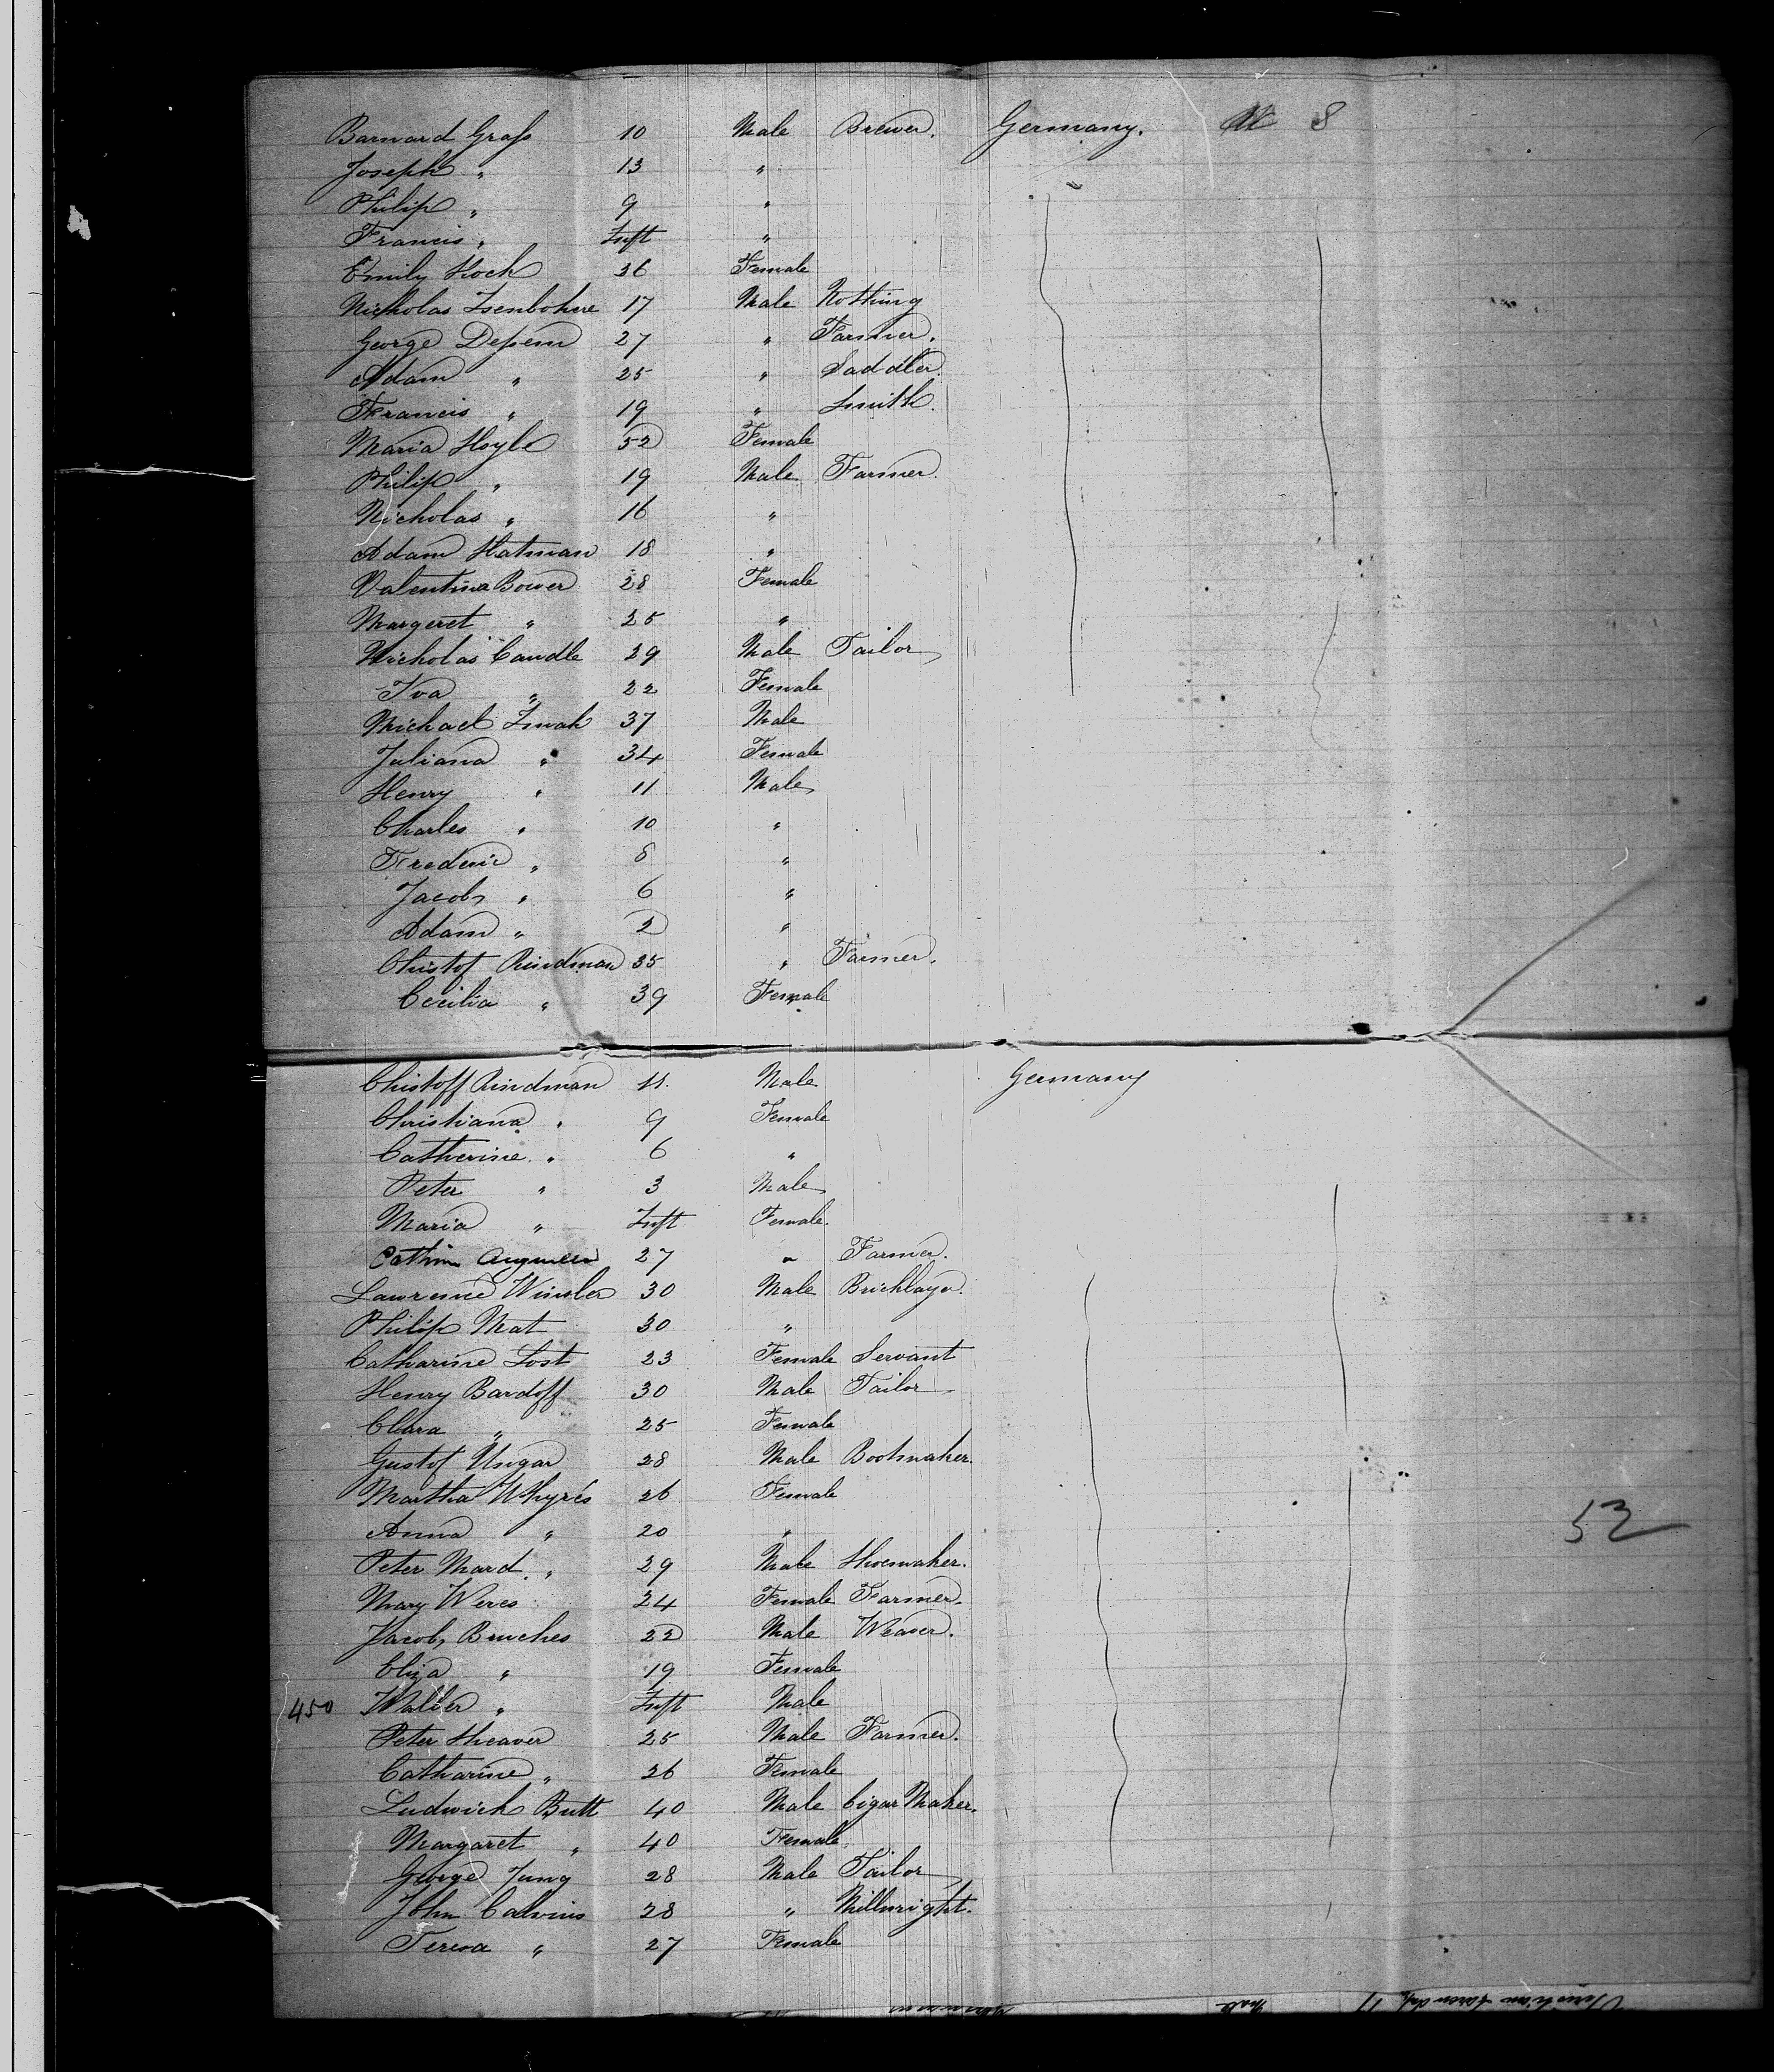 Barnard Grass 10 Male Brewer. Germany. 8
Joseph " 13 "
Philip " 9 "
Francis " Inft "
Emily Hock 36 Female
Nicholas Isenbohne 17 Male Nothing
George Depem 27 " Farmer.
Adam " 25 " Saddler.
Francis " 19 " Smith.
Maria Hoyle 52 Female
Philip " 19 Male Farmer.
Nicholas " 16 "
Adam Hatman 18 "
Valentina Bower 28 Female
Margeret " 25 "
Nicholas Caudle 29 Male Tailor
Iva " 22 Female
Michael Zwah 37 Male
Juliana " 34 Female
Henry " 11 Male
Charles " 10 "
Frederic " 8 "
Jacob " 6 "
Adam " 2 "
Christof Rindman 35 " Farmer.
Cecilia " 39 Female
Christoff Rindman 11. Male Germany
Christiana " 9 Female
Catherine " 6 "
Peter " 3 Male
Maria " Inft Female.
27 " Farmer.
Lawrence Winsler 30 Male Bricklayer.
Philip Mat 30 "
Catharine Lost 23 Female Servant
Henry Bardoff 30 Male Tailor
Clara " 25 Female
Gustof Ungar 28 Male Bootmaker.
Martha Whyrés 26 Female
Anna " 20 "
Peter Mard " 29 Male Shoemaker.
Mary Weres 24 Female Farmer.
Jacob Bruches 22 Male Weaver.
Eliza " 19 Female
450 Walter " Inft Male
Peter Sheaver 25 Male Farmer.
Catharine " 26 Female
Ludwick Butt 40 Male Cigar Maker.
Margaret " 40 Female
George Jung 28 Male Tailor
John Calvins 28 " Millwright.
Teresa " 27 Female
52